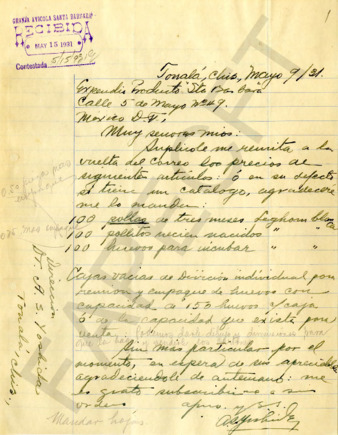 1
GRANJA AVICOLA SANTA BARBARA
RECIBIDA
MAY 15 1931
Contestada 5/15/31
Tonalá, Chis, Mayo 9/31.
Expendio Producto Sta Barbara
Calle 5 de Mayo No 49.
Mexico D.F;
Muy señores mios:
Suplicole me remita a la
vuelta del Correo los precios de
siguientes articulos: ó en su defecto
si tiene un catálogo, agradeceré
me lo manden:
100 pollas de tres meses leghorn blanca
100 pollitos recien nacidos " "
100 huevos para incubar " "
Cajas vacias de Division individual para
reunion y empaque de huevos con
capacidad de 150 huevos c/caja
ó de la capacidad que existe
Sin más particular por el
momento, en espera de sus apreciable
agradeciendole de antemano: me
es grato subscribirme a sus
ordenes
Direccion
Dr. A. S. Yoshida
Tonalá, Chis,
Mandar hojas